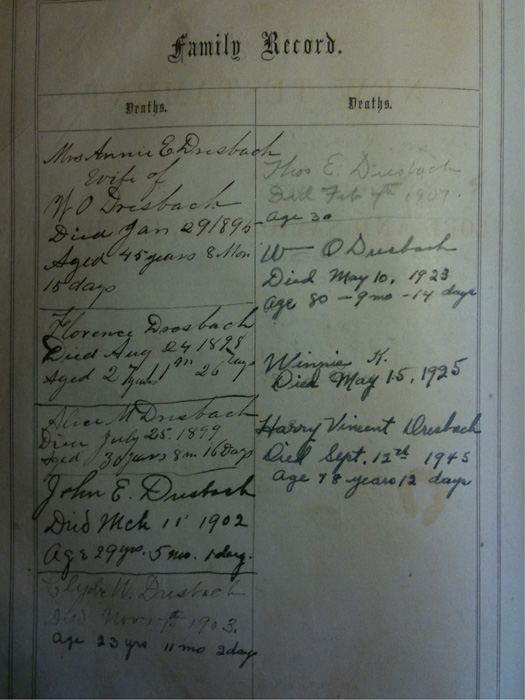 Family Record.
Deaths.
Mrs Annie E Dresbach
Wife of
W O Dresbach
Died Jan 29 1895
Aged 45 years 8 Mon
15 days
Florence Dresbach
Died Aug 24 1898
Aged 2 years 1 m 26 Days
Alice M Dresbach
Died July 25 1899
Aged 30 years 8 m 16 Days
John E. Dresbach
Died Mch 11 1902
Age 29 yrs. 5 mo. 1 day.
Clyde W. Dresbach
Died Nov th 1903.
Age 23 yrs 11 mo 2 days
Deaths.
Thos E. Dresbach
Died Feb 7th 1907.
Age 30
W O Dresbach
Died May 10, 1923
Age 80 - 9 mo - 14 days
Winnie K.
Died May 15, 1925
Harry Vincent Dresbach
Died Sept. 12th 1945
Age 78 years 12 days